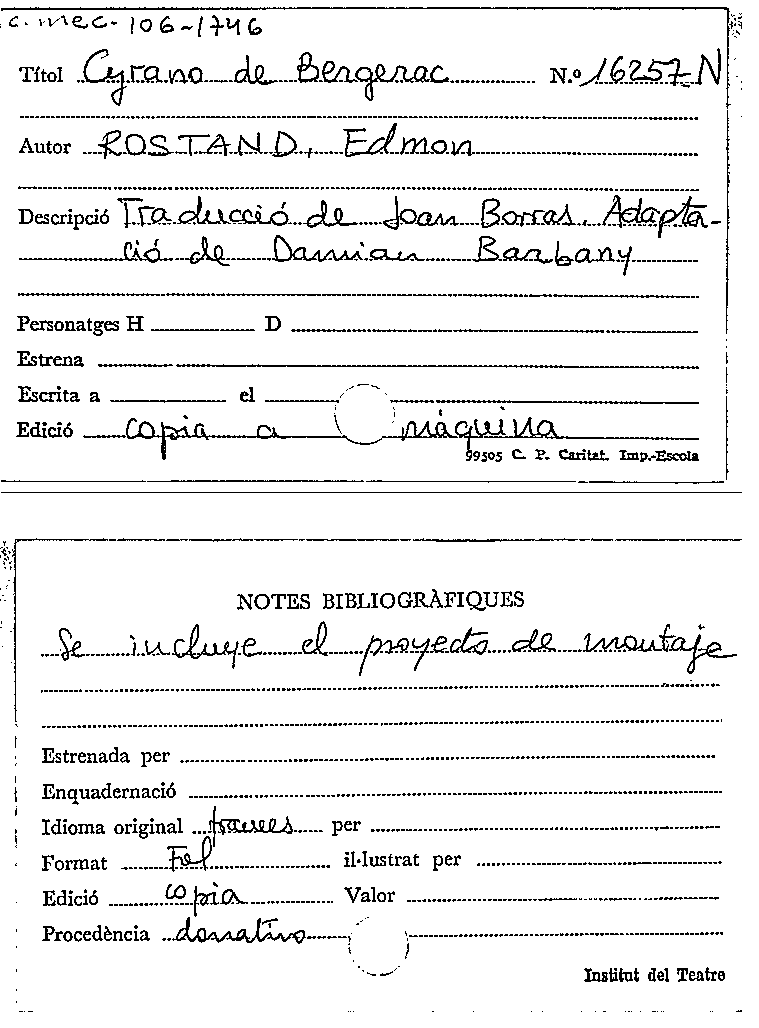 c. mec. 106-1746
Títol Cyrano de Bergerac N.º 16257 N
Autor ROSTAND, Edmon
Descripció Traducció de Joan Borras. Adapta-
ció de Damian Barbany
Personatges H D
Estrena
Escrita a el
Edició copia a màquina
99505 C. P. Caritat. Imp.-Escola
NOTES BIBLIOGRÀFIQUES
Se incluye el proyecto de montaje
Estrenada per
Enquadernació
Idioma original frances per
Format Fol il·lustrat per
Edició copia Valor
Procedència donativo
Institut del Teatre